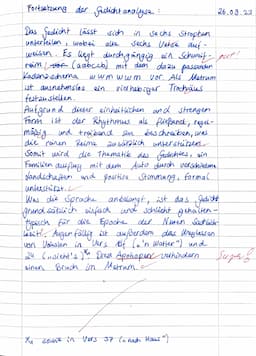 Fortsetzung der Gedichtanalyse:
26.09.23
Das Gedicht lässt sich in sechs Strophen
unterteilen, wobei alle sechs Verse auf-
weisen. Es liegt durchgängig ein Schweif-
reim (aabccb) mit dem dazu passenden
Kadenzschema wwmwwm vor. Als Metrum
ist ausnahmslos ein vierhebiger Trochäus
festzustellen.
Aufgrund dieser einheitlichen und strengen
Form ist der Rhythmus als fließend, regel-
mäßig und treibend zu beschreiben, was
die reinen Reime zusätzlich unterstützen.
Somit wird die Thematik des Gedichtes, ein
Familienausflug mit dem Auto durch verschiedene
Landschaften und positive Stimmung, formal
unterstützt.
Was die Sprache anbelangt, ist das Gedicht
grundsätzlich einfach und schlicht gehalten -
typisch für die Epoche der Neuen Sachlich-
keit. Augenfällig ist außerdem das Weglassen
von Vokalen in Vers 16 ("'n Vetter") und
24 ("sieht's")*1. Diese Apokopen verhindern
einen Bruch im Metrum.
Super!
*1 sowie in Vers 37 ("nach Haus")